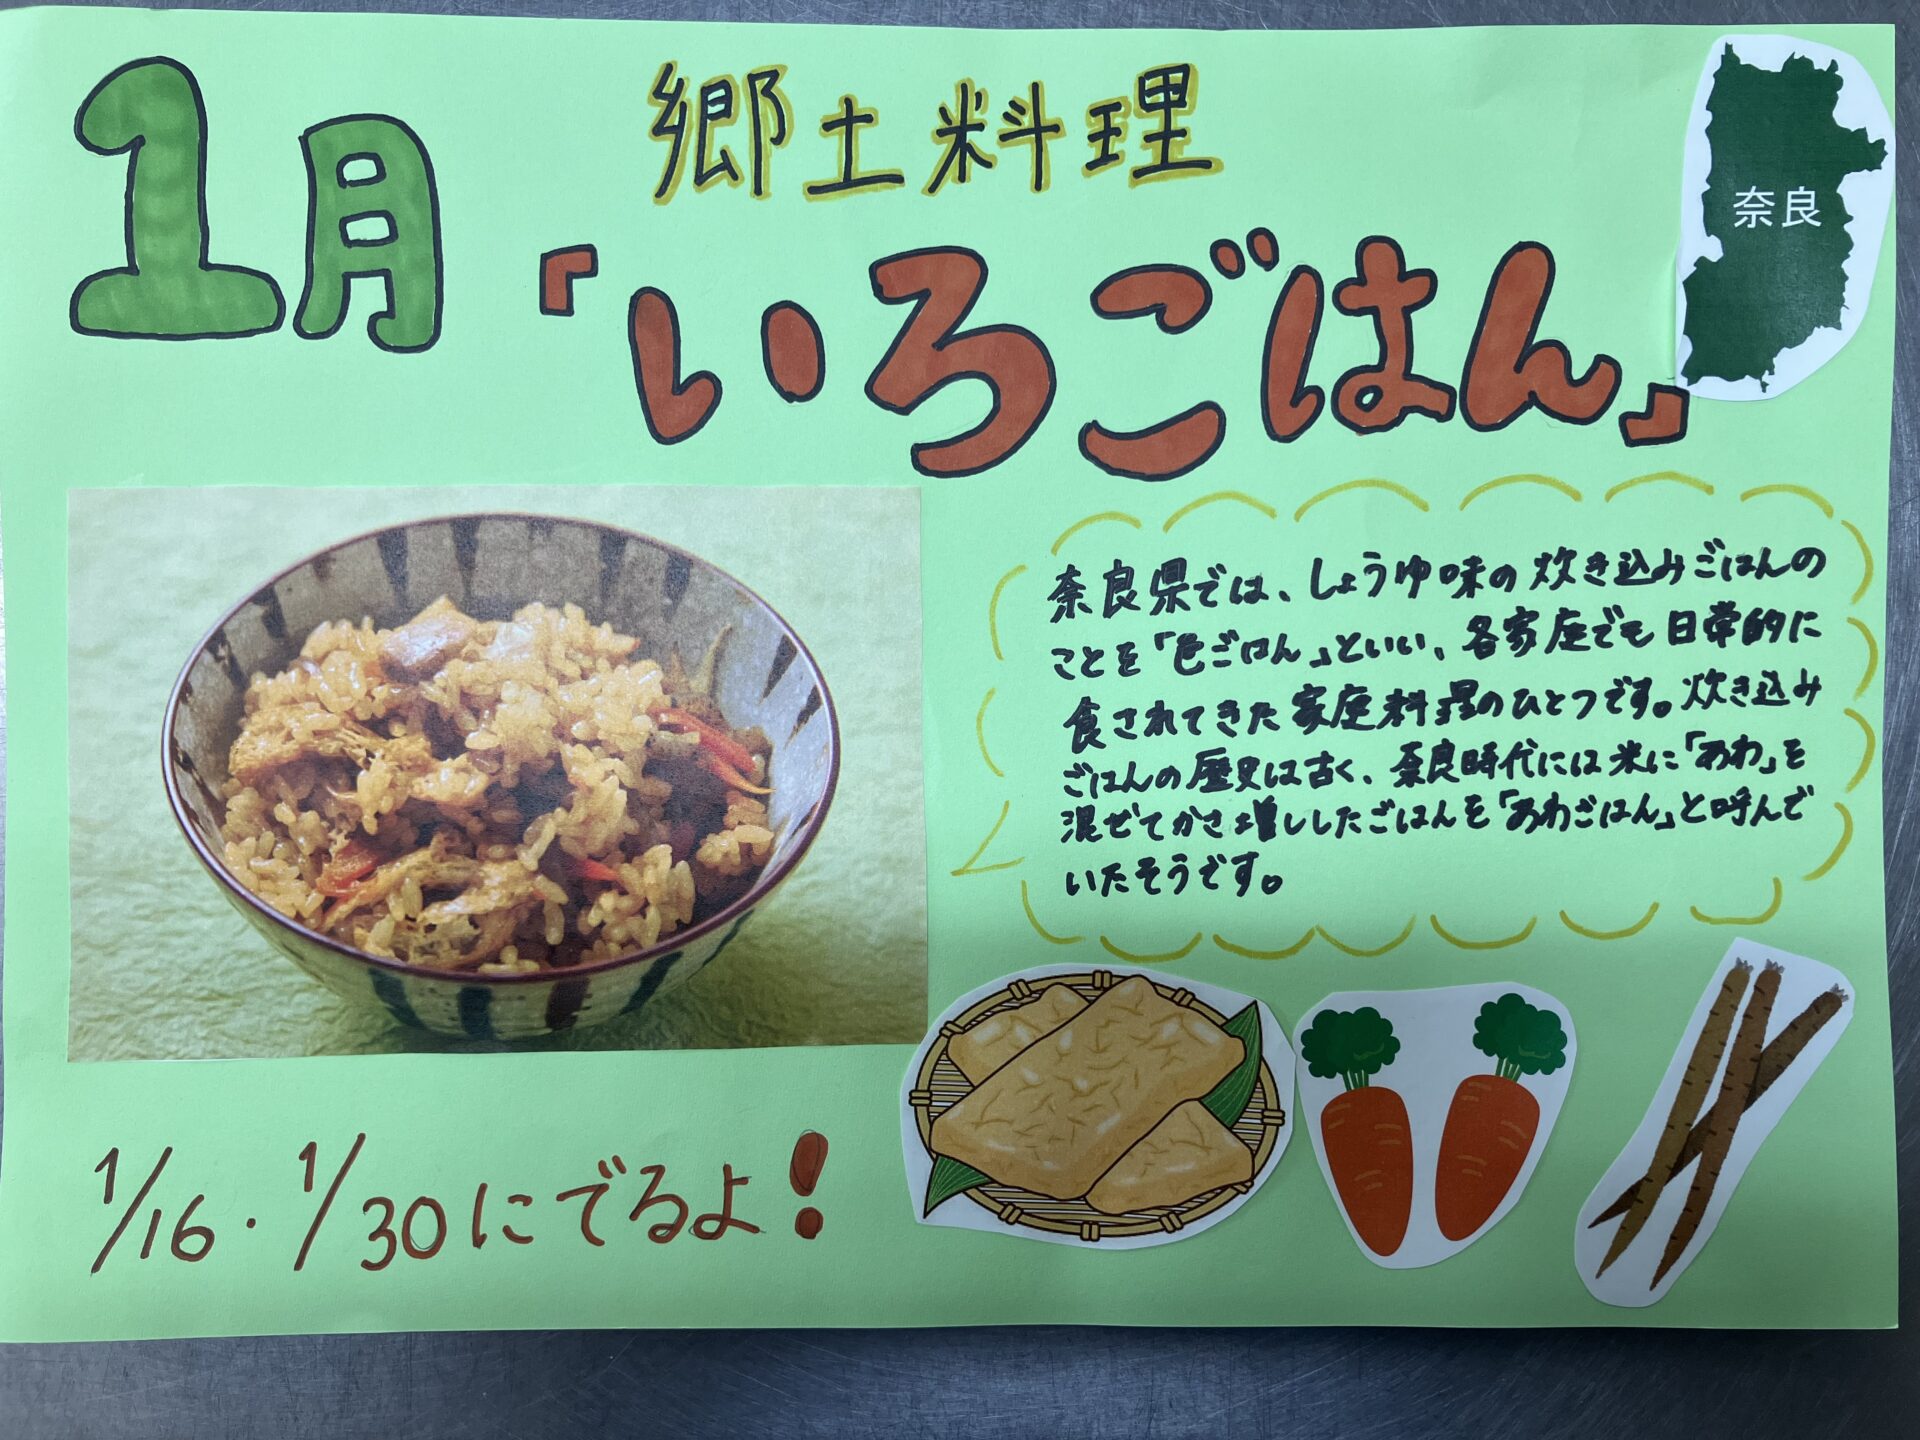 1月
郷土料理
「いろごはん」
奈良
奈良県では、しょうゆ味の炊き込みごはんの
ことを「色ごはん」といい、各家庭でも日常的に
食されてきた家庭料理のひとつです。炊き込み
ごはんの歴史は古く、奈良時代には米に「あわ」を
混ぜてかさ増ししたごはんを「あわごはん」と呼んで
いたそうです。
1/16・1/30にでるよ!